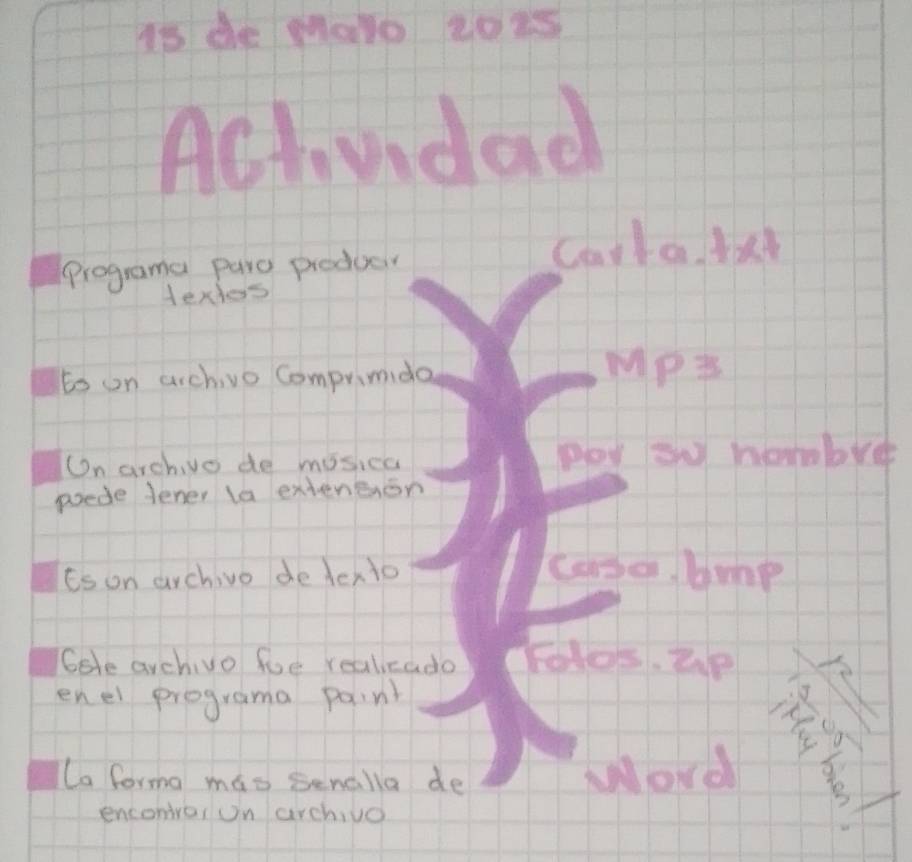 15 de Mayo 2025
Actividad
Programa para producir
textos
Carta.txt
Es un archivo Comprimido
Mp3
Un archivo de música
puede tener la extensión
Por su nombre
Es un archivo de texto
Casa.bmp
Este archivo fue realizado
en el programa paint
Fotos.zip
La forma más sencilla de
encontrar un archivo
Word
¡Muy bien!